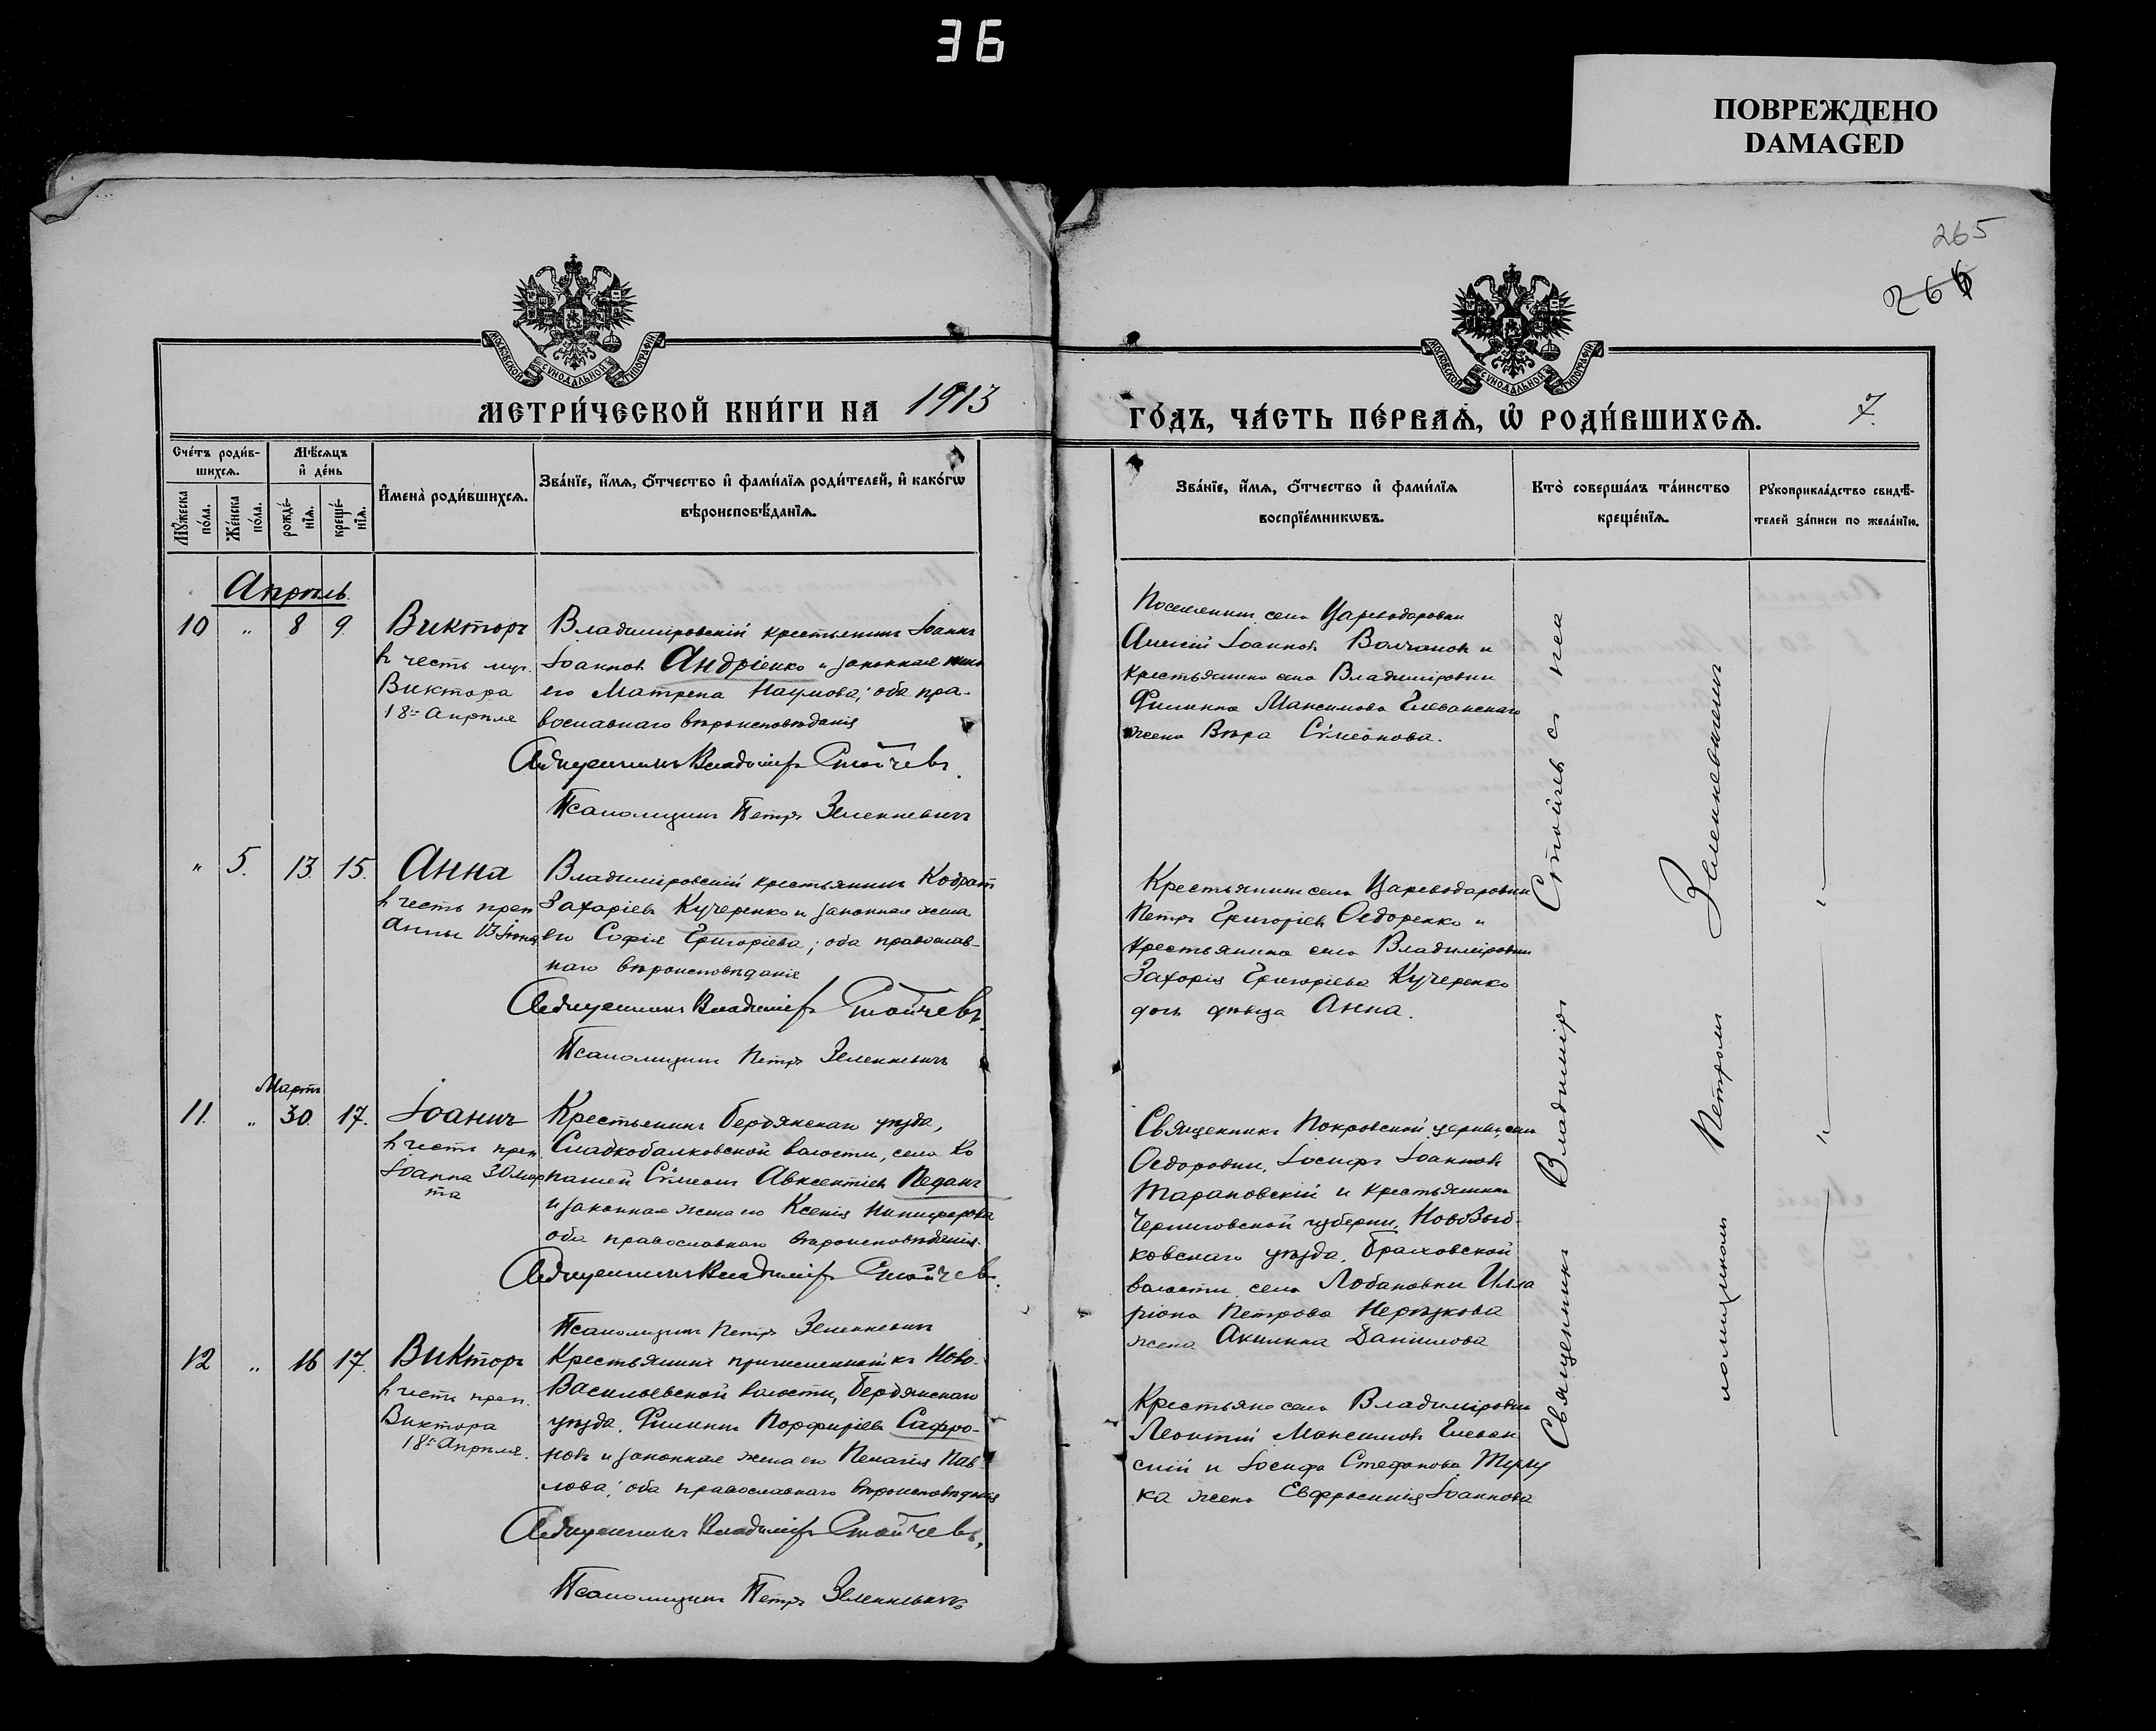 36
ПОВРЕЖДЕНО
DAMAGED
265
266
МОСКОВСКОЙ СѴНОДАЛЬНОЙ ТИПОГРАФІИ
МОСКОВСКОЙ СѴНОДАЛЬНОЙ ТИПОГРАФІИ
МЕТРИ́ЧЕСКОЙ КНИ́ГИ НА 1913
ГО́ДЪ, ЧА́СТЬ ПЕ́РВАѦ, Ѡ҆ РОДИ́ВШИХСѦ. 7.
Сче́тъ роди́в-
шихсѧ.
Мꙋ́жеска
по́ла.
Же́нска
по́ла.
Мѣ́сѧцъ
и҆ де́нь
рожде́-
нїѧ.
креще́-
нїѧ.
И҆мена̀ роди́вшихсѧ.
Зва́нїе, и҆́мѧ, ѻ҆́тчество и҆ фами́лїѧ роди́телей, и҆ како́гѡ
вѣроисповѣ́данїѧ.
Зва́нїе, и҆́мѧ, ѻ҆́тчество и҆ фами́лїѧ
воспрїе́мникѡвъ.
Кто̀ соверша́лъ та́инство
креще́нїѧ.
Рꙋкоприкла́дство свидѣ́-
телей за́писи по жела́нїю.
Апрѣль
10 " 8 9.
Викторъ
въ честь муч.
Виктора
18го Апрѣля
Владимировскій крестьянинъ Іоаннъ
Іоанновъ Андріенко и законная жена
его Матрена Наумова; оба пра-
вославнаго вѣроисповѣданія
Священникъ Владиміръ Стойчевъ.
Псаломщикъ Петръ Зеленкевичъ
Поселянинъ села Цареводаровки
Алексій Іоанновъ Волчановъ и
крестьянина села Владиміровки
Филиппа Максимова Глеванскаго
жена Вѣра Сѵмеонова.
" 5. 13. 15.
Анна
въ честь преп.
Анны 13 Іюня
Владиміровскій крестьянинъ Кодратъ
Захаріевъ Кучеренко и законная жена
его Софія Григоріева; оба православ-
наго вѣроисповѣданія
Священникъ Владиміръ Стойчевъ.
Псаломщикъ Петръ Зеленкевичъ
Крестьянинъ села Цареводаровки
Петръ Григоріевъ Ѳедоренко и
крестьянина села Владиміровки
Захарія Григоріева Кучеренко
дочь дѣвица Анна.
Мартъ
11. " 30. 17.
Іоаннъ
въ честь преп.
Іоанна 30 мар
та
Крестьянинъ Бердянскаго уѣзда,
Сладкобалковской волости, села Ко
паней Сѵмеонъ Авксентіевъ Педанъ
и законная жена его Ксенія Никифорова
оба православнаго вѣроисповѣданія.
Священникъ Владиміръ Стойчевъ.
Псаломщикъ Петръ Зеленкевичъ
Священникъ Покровской церкви, села
Ѳедоровки, Іосифъ Іоанновъ
Тарановскій и крестьянина
Черниговской губерніи, Новозыб-
ковскаго уѣзда, Брахловской
волости, села Лобановки Илла
ріона Петрова
жена Акилина Даніилова
12 " 16 17.
Викторъ
въ честь преп.
Виктора
18го Апрѣля.
Крестьянинъ причисленный къ Ново-
Васильевской волости, Бердянскаго
уѣзда, Филиппъ Порфиріевъ Сафро-
новъ и законная жена его Пелагія Пав-
лова; оба православнаго вѣроисповѣданія
Священникъ Владиміръ Стойчевъ,
Псаломщикъ Петръ Зеленкевичъ
Крестьяне села Владиміровки
Леонтій Максимовъ Глеван
скій и Іосифа Стефанова
ка жена Евфросинія Іоаннова
Священникъ Владиміръ Стойчевъ съ пса
ломщикомъ Петромъ Зеленкевичемъ